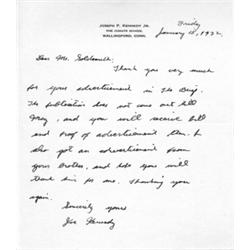 JOSEPH P. KENNEDY JR.
THE CHOATE SCHOOL
WALLINGFORD, CONN.
Friday
January 1932.
Dear Mr. Goldsmith:
Thank you very much
for your advertisement in The Brief.
The publication does not come out till
May, and you will receive bill
and proof of advertisement then. I
also got an advertisement from
your brother, and hope you will
thank him for me. Thanking you
again.
Sincerely yours
Joe Kennedy